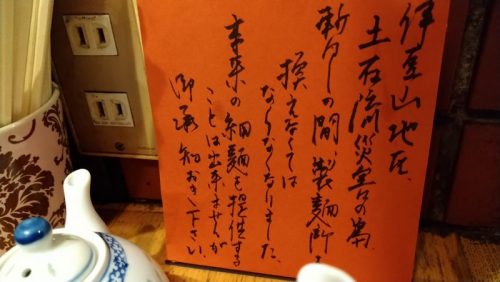 伊豆山地区、
土石流災害の為、
暫らくの間、製麺所を
換えなくては
ならなくなりました。
本来の細麺を提供する
ことは出来ませんが
御承知おき下さい。